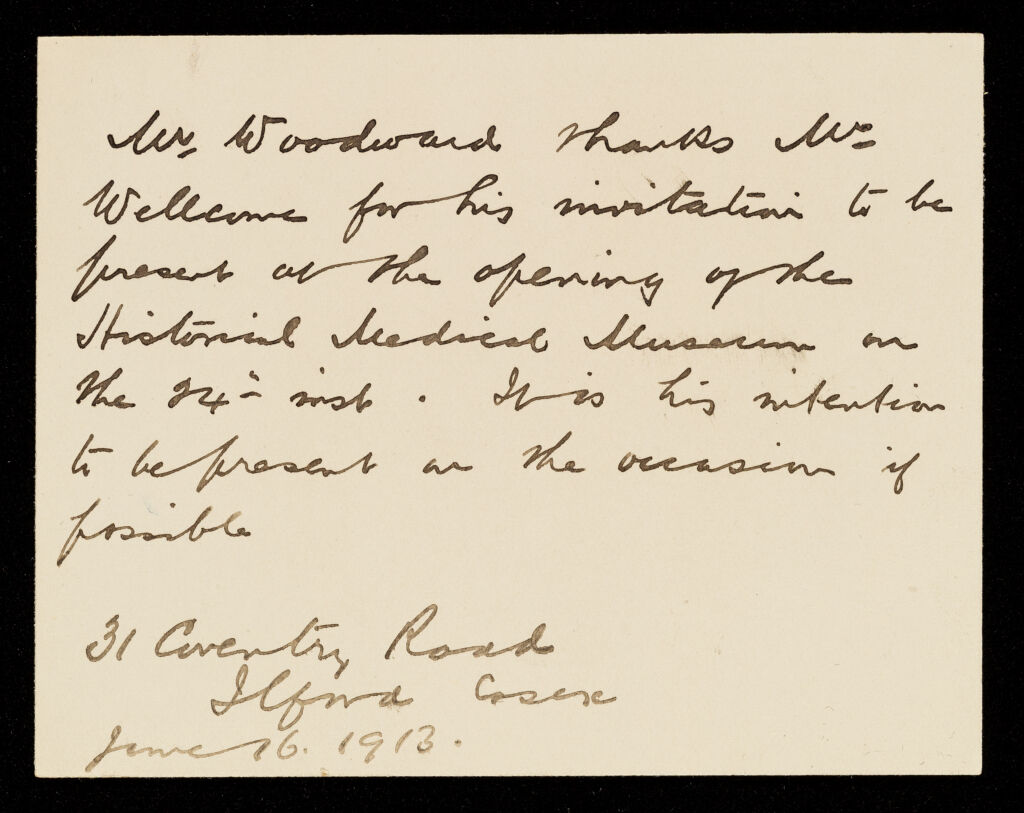 Mr. Woodward thanks Mr.
Wellcome for his invitation to be
present at the opening of the
Historical Medical Museum on
the 24th inst. It is his intention
to be present on the occasion if
possible
31 Coventry Road
Ilford Essex
June 16. 1913.